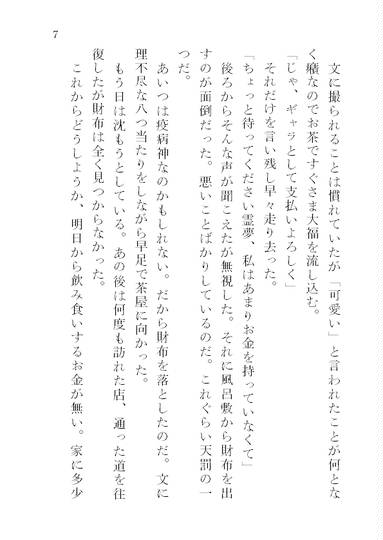 7
文に撮られることは慣れていたが「可愛い」と言われたことが何とな
く癪なのでお茶ですぐさま大福を流し込む。
「じゃ、ギャラとして支払いよろしく」
それだけを言い残し早々走り去った。
「ちょっと待ってください霊夢、私はあまりお金を持っていなくて」
後ろからそんな声が聞こえたが無視した。それに風呂敷から財布を出
すのが面倒だった。悪いことばかりしているのだ。これぐらい天罰の一
つだ。
あいつは疫病神なのかもしれない。だから財布を落としたのだ。文に
理不尽な八つ当たりをしながら早足で茶屋に向かった。
もう日は沈もうとしている。あの後は何度も訪れた店、通った道を往
復したが財布は全く見つからなかった。
これからどうしようか、明日から飲み食いするお金が無い。家に多少